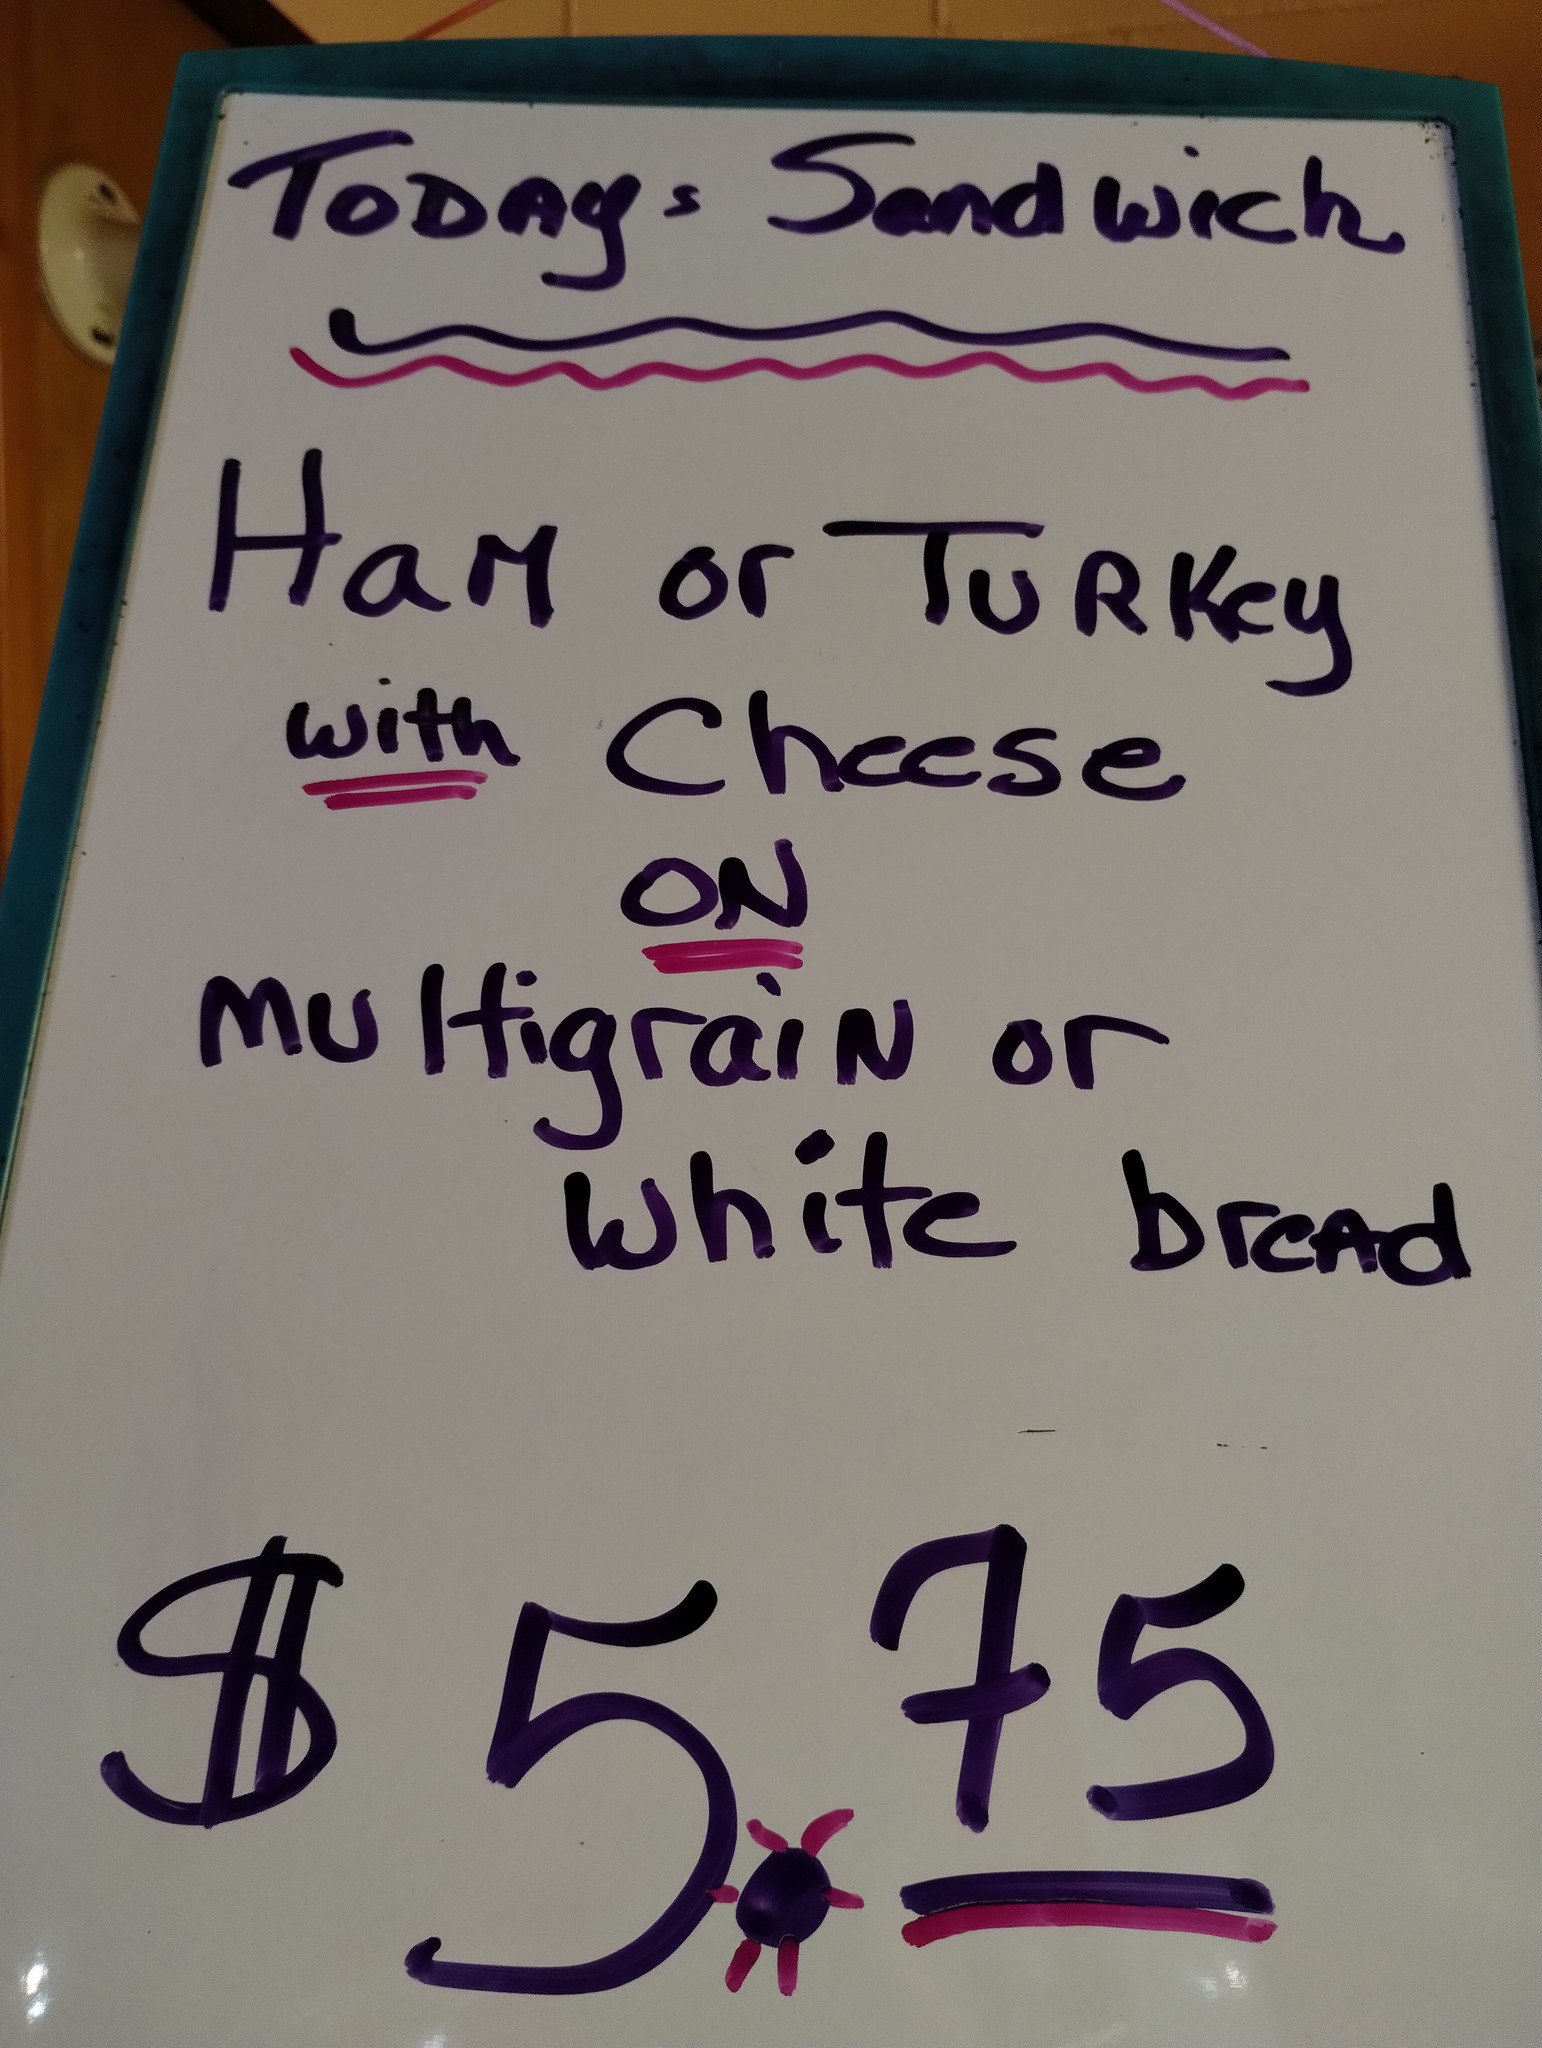 TODAYs Sandwich
HaM or TURKey
with Cheese
ON
MultigraiN or
White breAd
$ 5.75